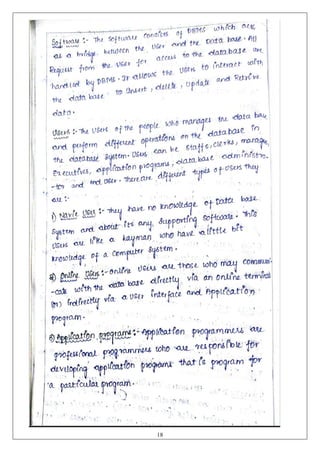 Software :- The software consists of DBMS which acts
as a bridge between the user and the Data base. All
Request from the user for access to the database are
handled by DBMS. It allows the users to interact with
the data base to insert, delete, update and Retrive
data.
Users :- The users of the people who manages the data base
and perform different operations on the database in
the database system. Users can be staffs, clerks, manages,
Executives, application programs, data base administra-
-tor and end user. There are different types of users they
are :-
1) Navie User :- They have no knowledge of Data base
System and about its any supporting software. This
Users are like a layman who have a little bit
knowledge of a Computer System.
Online Users :- online Users are those who may commun-
-cate with the data base directly via an online terminal
(or) indirectly via a user interface and Application
program.
Application programs :- Application programmers are
professional programmers who are responsible for
developing application programs that is program for
a particular program.
18